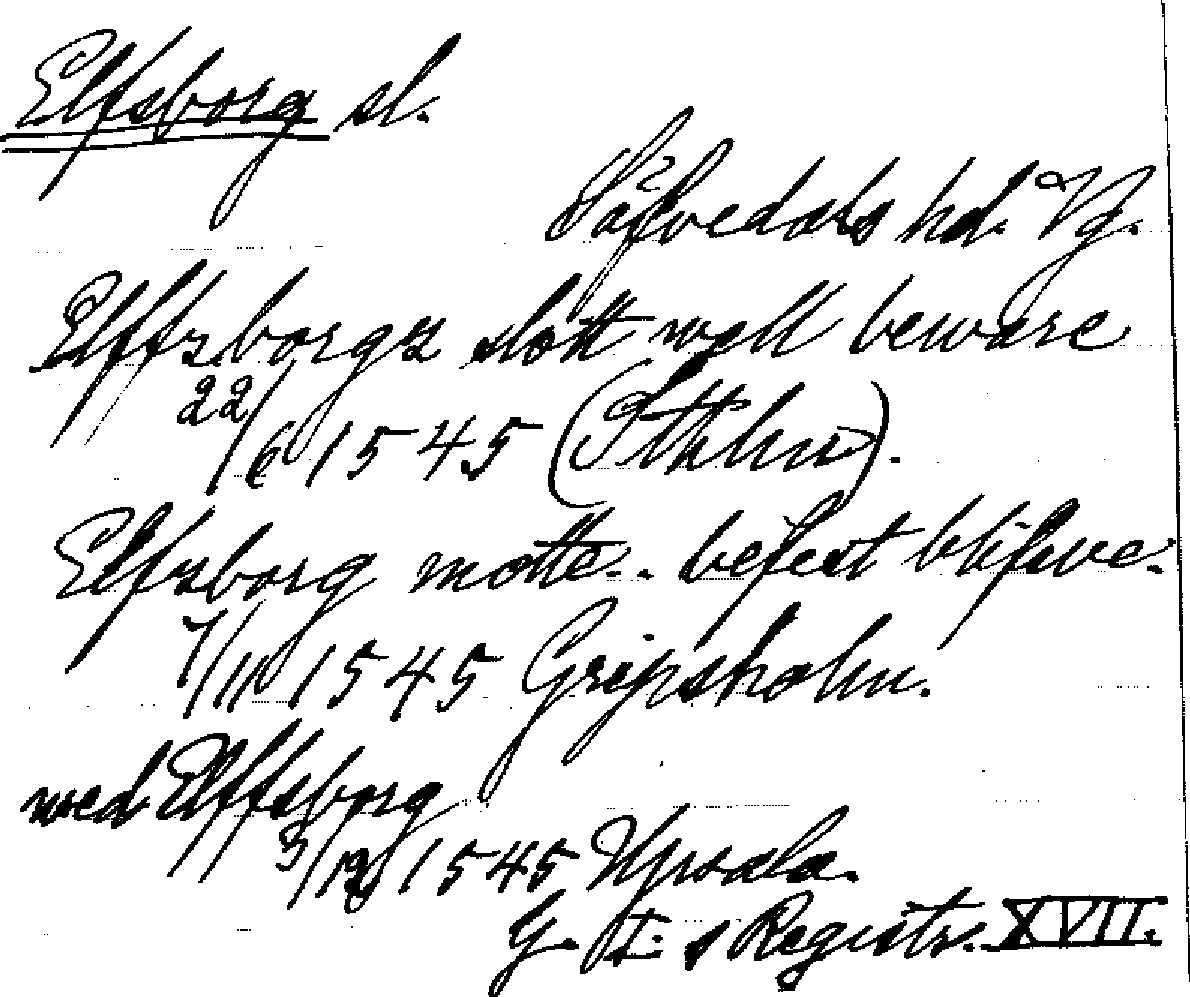 Elfsborg sl.
Säfvedals hd. Vg.
Elffzborgz slott well beware
22/6 1545 (Sthlm).
Elfzborg motte.. befest blifwe.
7/11 1545 Gripsholm.
med Elffsborg
3/12 1545 Upsala.
G. I.s Registr. XVII.